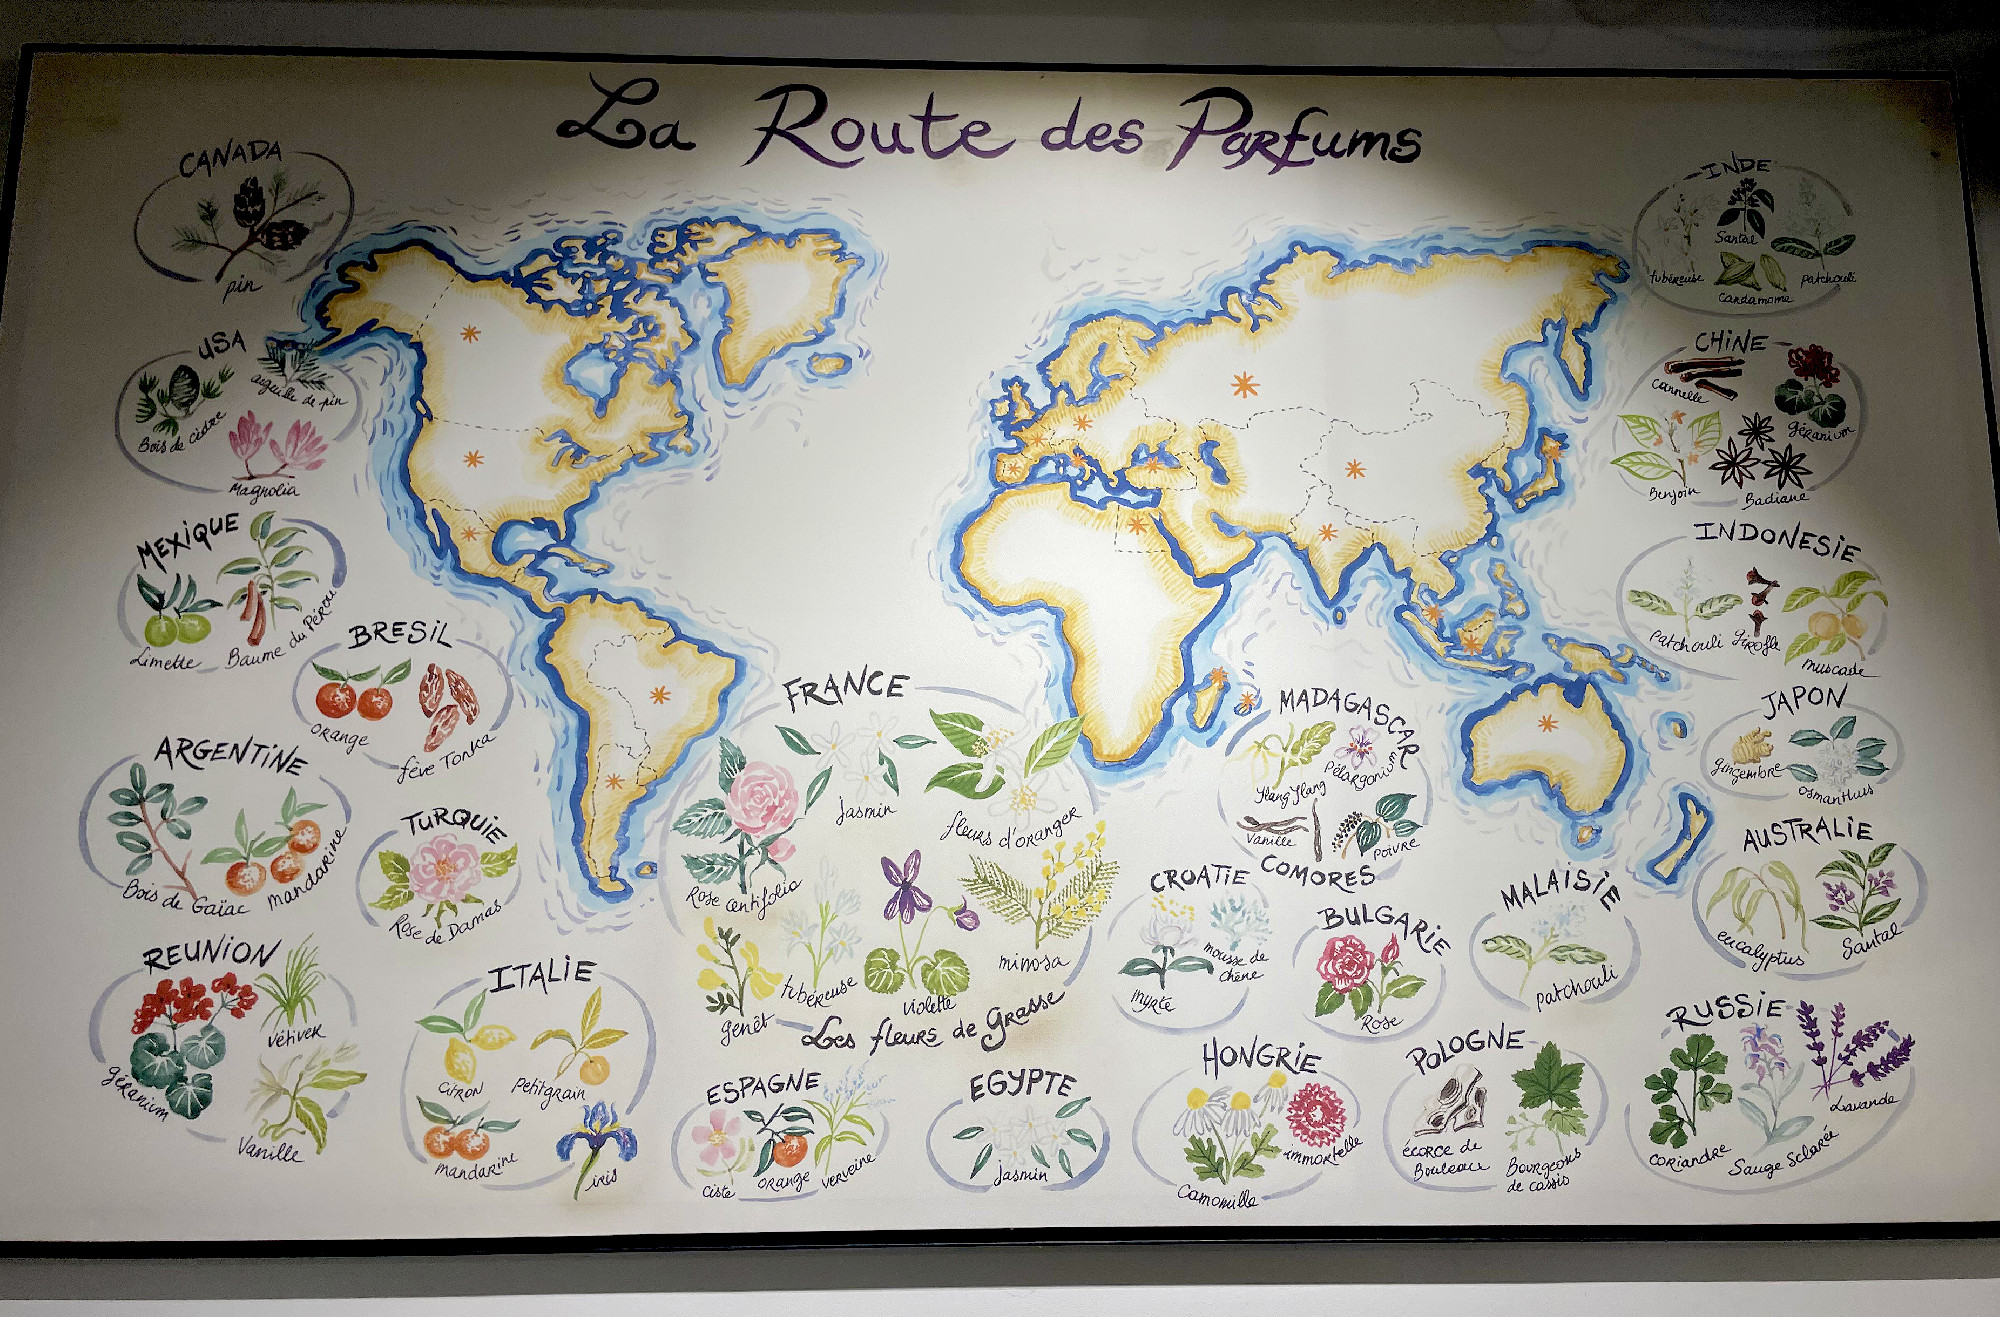 La Route des Parfums
CANADA
pin
USA
aiguille de pin
Bois de cèdre
Magnolia
MEXIQUE
Limette
Baume du Pérou
BRESIL
orange
fève Tonka
ARGENTINE
Bois de Gaïac
mandarine
TURQUIE
Rose de Damas
REUNION
vétiver
géranium
Vanille
ITALIE
citron
Petitgrain
mandarine
iris
FRANCE
Jasmin
fleurs d'oranger
Rose centifolia
tubéreuse
violette
mimosa
genêt
Les fleurs de Grasse
ESPAGNE
ciste
orange
verveine
EGYPTE
jasmin
MADAGASCAR
Ylang Ylang
Pélargonium
Vanille
Poivre
COMORES
CROATIE
myrte
mousse de
chêne
BULGARIE
Rose
MALAISIE
patchouli
HONGRIE
Camomille
immortelle
POLOGNE
écorce de
Bouleau
Bourgeons
de cassis
RUSSIE
coriandre
Sauge Sclarée
Lavande
INDE
tubéreuse
Santal
Cardamome
patchouli
CHINE
Cannelle
géranium
Benjoin
Badiane
INDONESIE
Patchouli
girofle
muscade
JAPON
gingembre
osmanthus
AUSTRALIE
eucalyptus
Santal